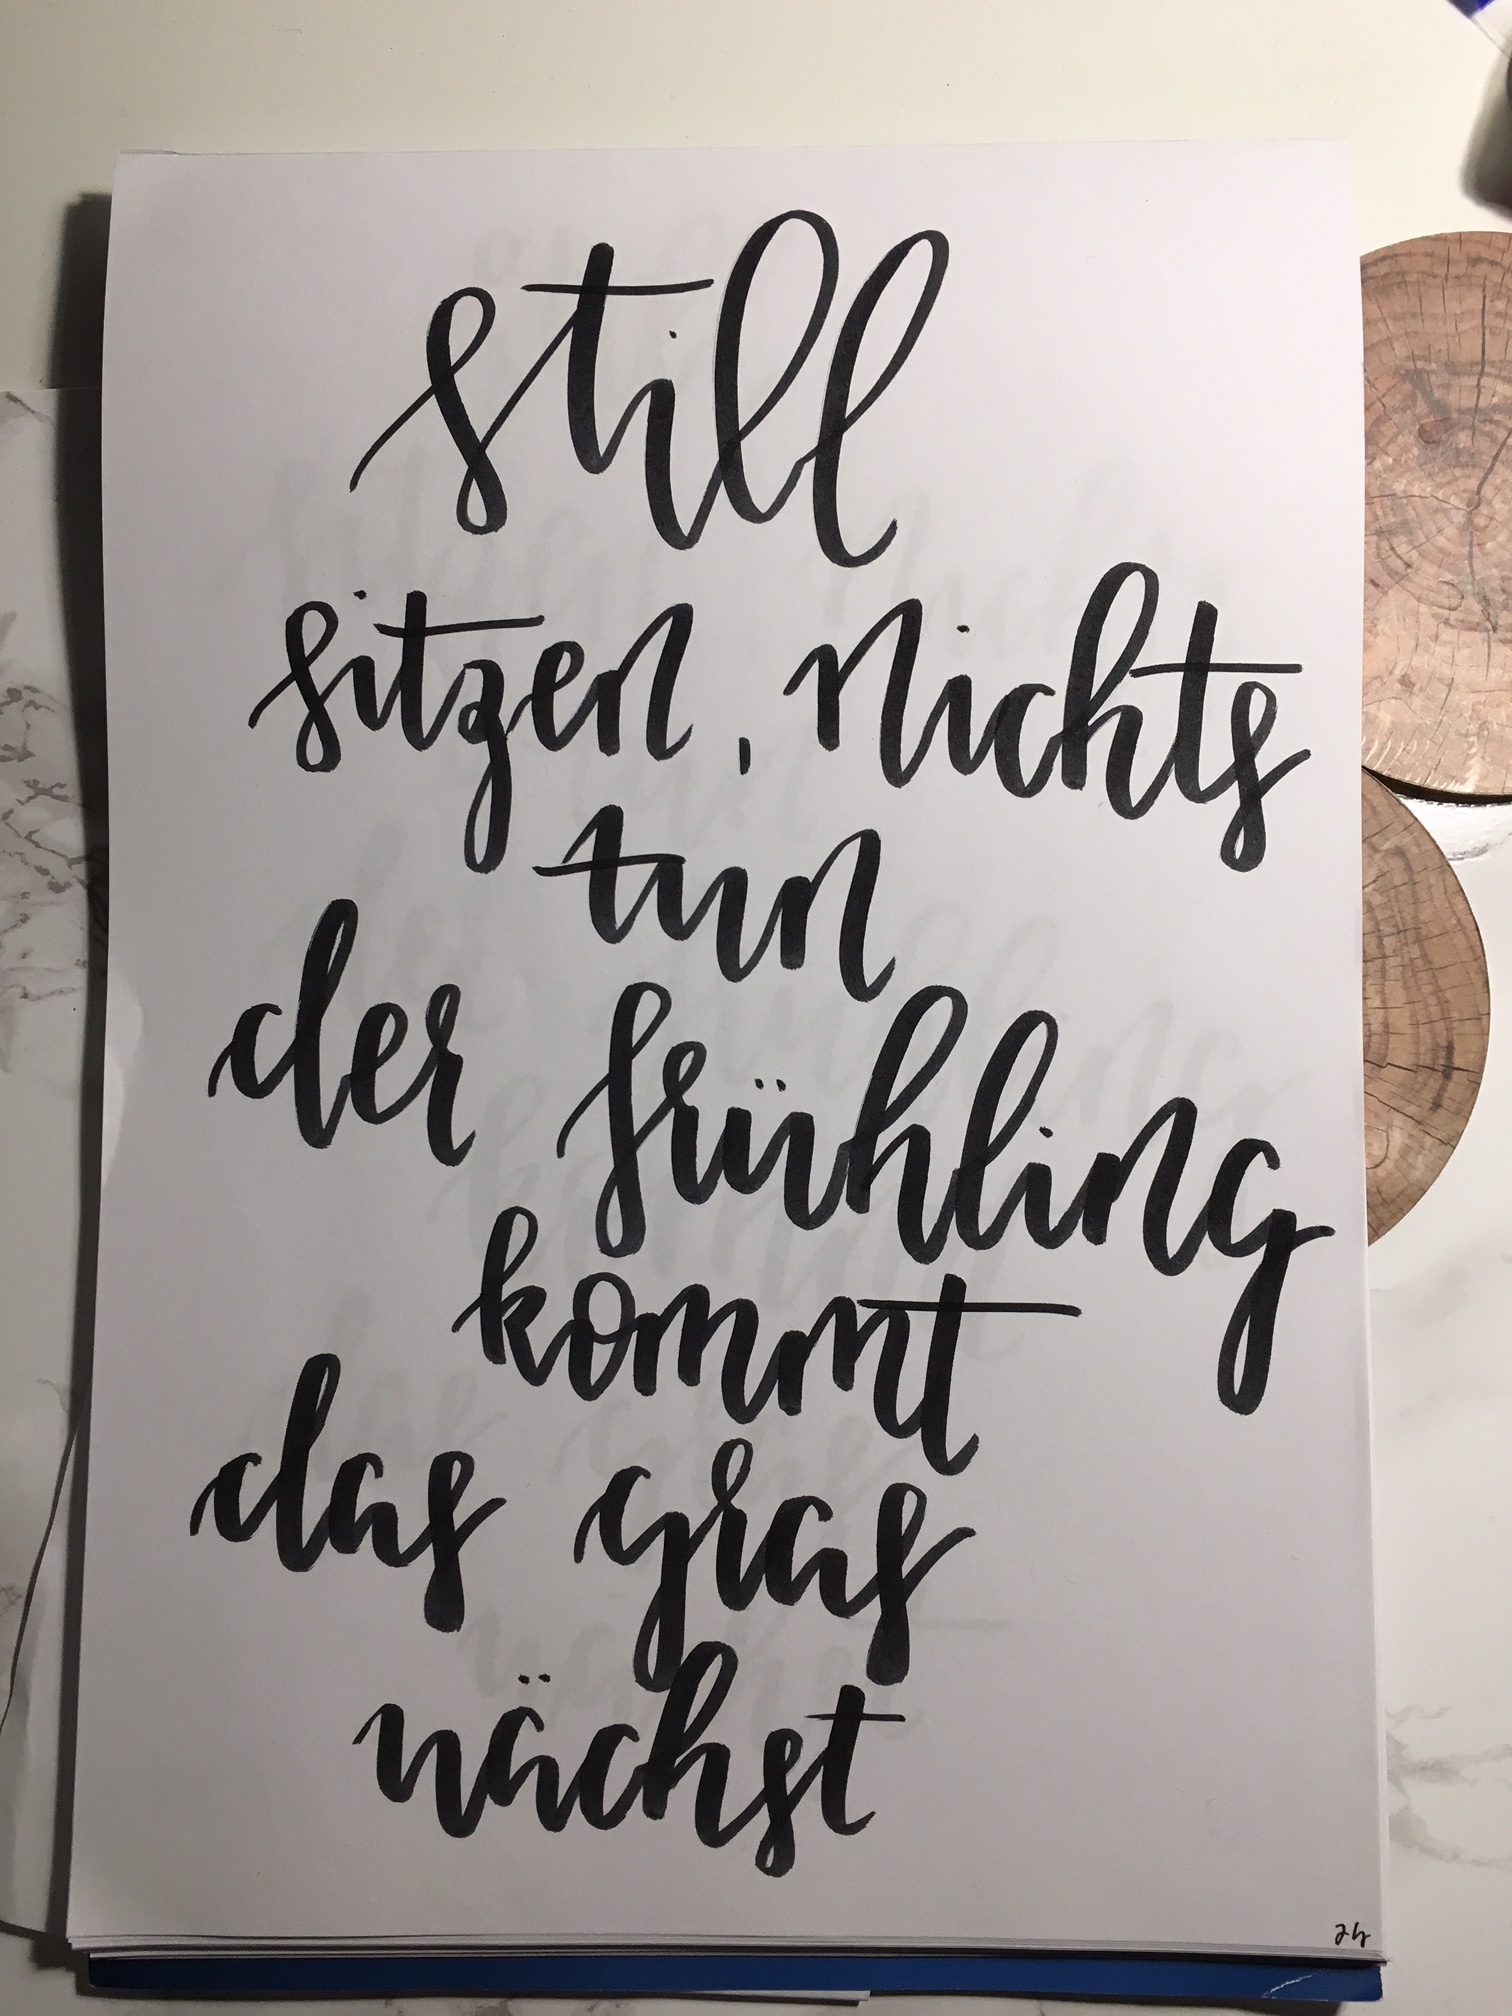 still
sitzen, nichts
tun
der frühling
kommt
das gras
wächst